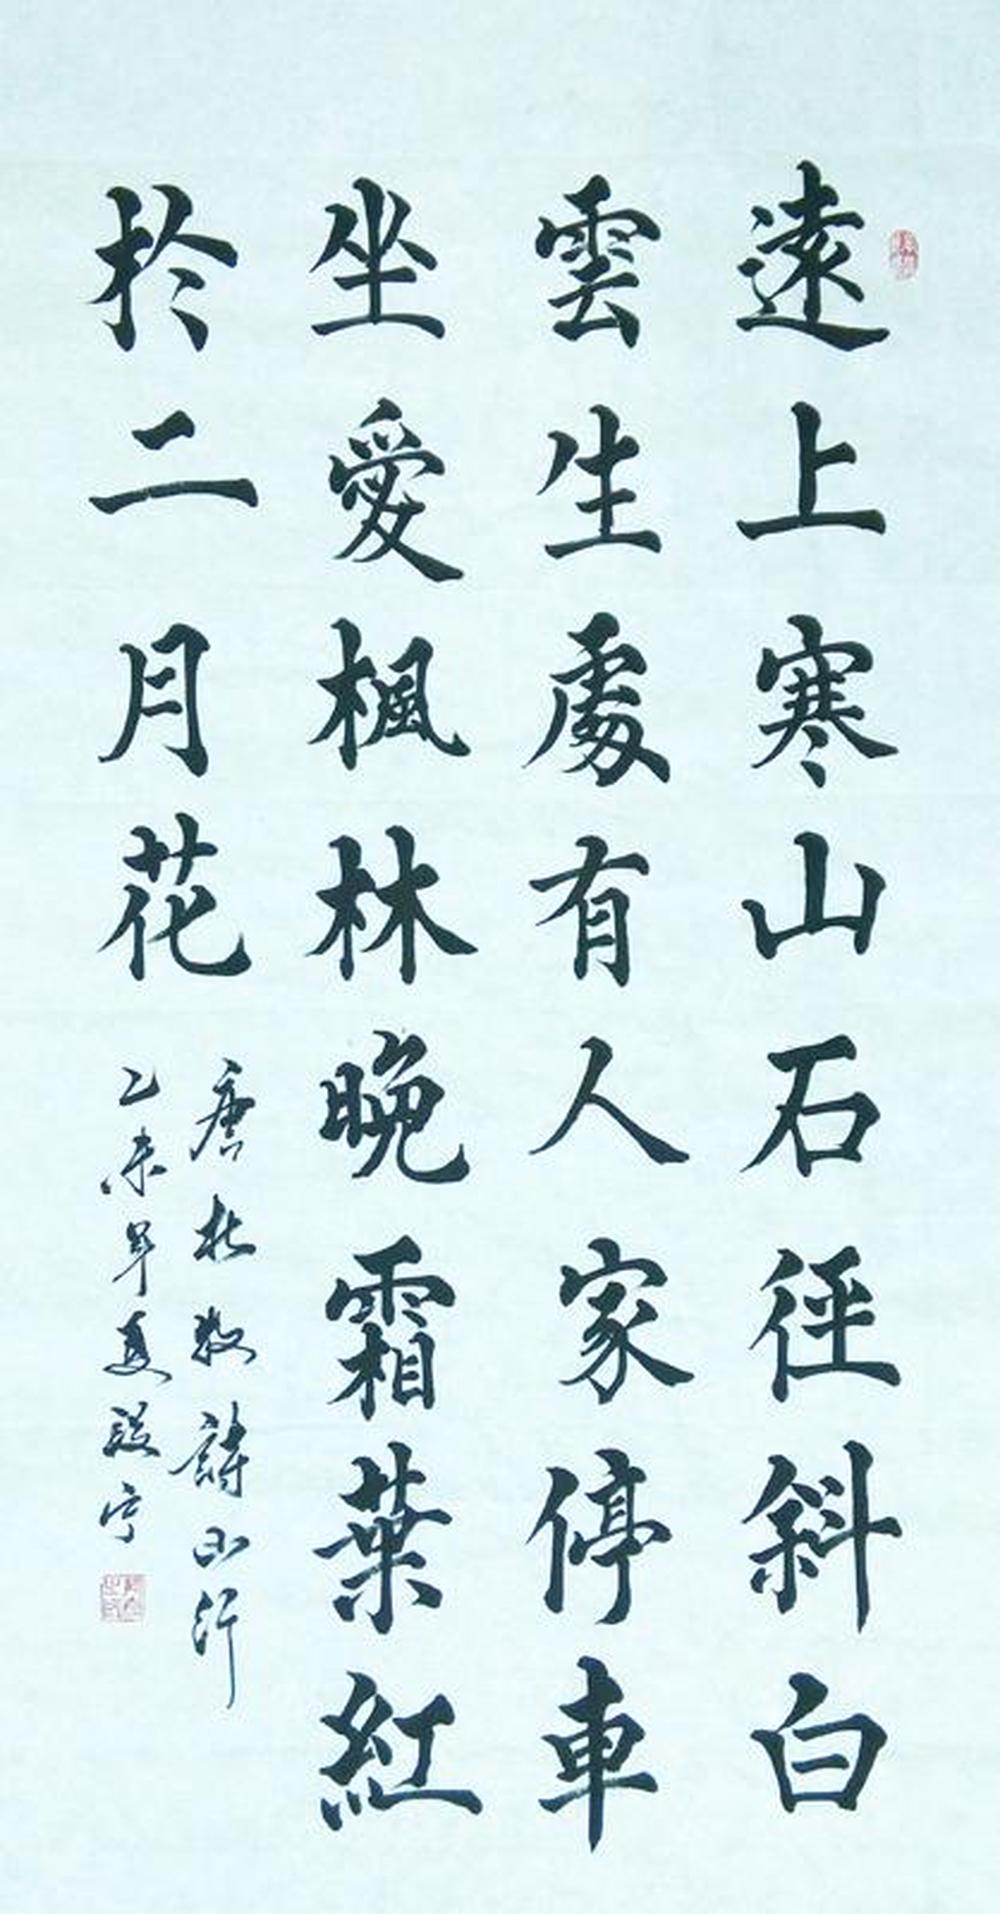 遠上寒山石徑斜白
雲生處有人家停車
坐愛楓林晚霜葉紅
於二月花
唐杜牧詩山行
乙未年夏 段宁